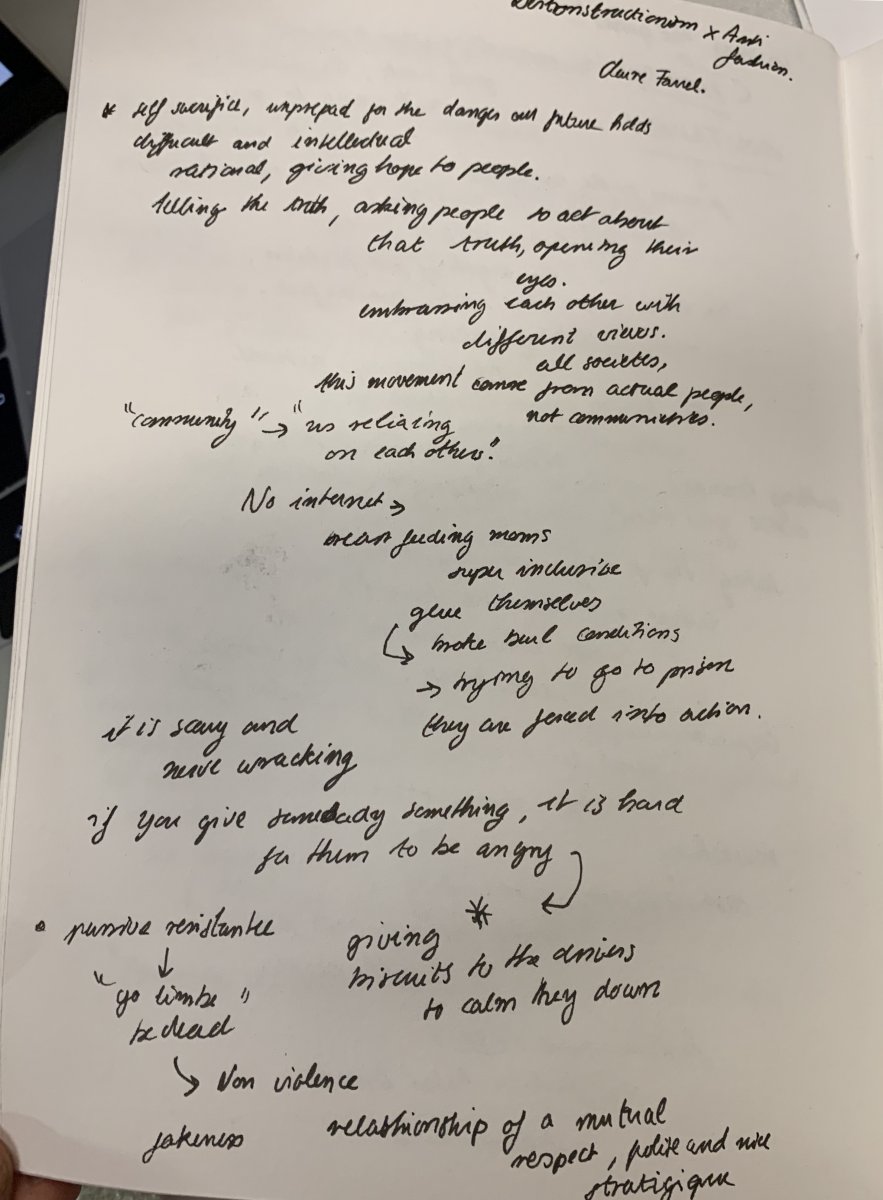 Deconstructionism x Anti
fashion.
Claire Farrel.
* self sacrifice, unprepad for the danges our future holds
difficult and intellectual
rational, giving hope to people.
telling the truth, asking people to act about
that truth, opening their
eyes.
embrassing each other with
different views.
all societes,
this movement came from actual people,
not communities.
"community" → "us reliazing
on each others."
No internet →
breast feeding moms
super inclusive
glue themselves
↳ broke bail conditions
→ trying to go to prison
they are forced into action.
it is scary and
nerve wracking
if you give somebady something, it is hard
for them to be angry
• passive resistantce
↓
"go limbe"
be dead
↳ Non violence
* giving
biscuits to the drivers
to calm they down
relashionship of a mutual
respect, polite and nice
stratigique